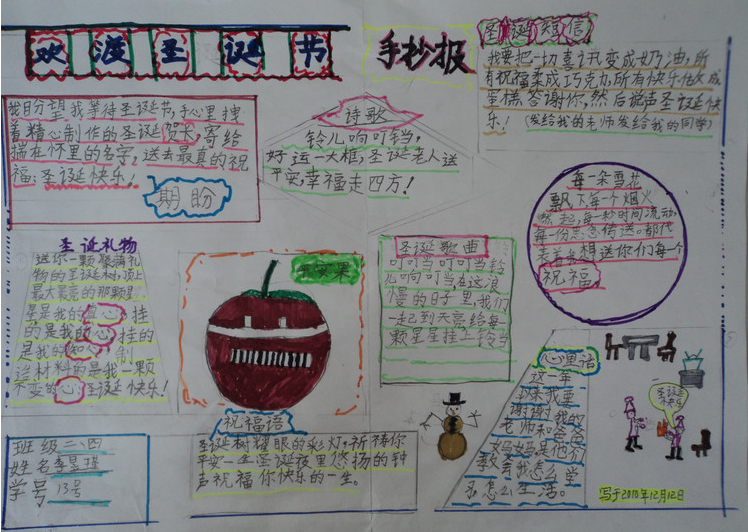 欢渡圣诞节
手抄报
圣诞短信
我要把一切喜讯变成奶油,所
有祝福柔成巧克力,所有快乐做成
蛋糕答谢你,然后说声圣诞快
乐!(发给我的老师发给我的同学)
我日分望我等待圣诞节,手心里拽
着精心制作的圣诞贺卡,寄给
揣在怀里的名字。送去最真的祝
福:圣诞快乐!
期盼
诗歌
铃儿响叮铛,
好运一大框,圣诞老人送
平安,幸福走四方!
每一朵雪花
飘下每一个烟火
燃起,每一秒时间流动,
每一份思念传送。都代
表着我想送你们每个
祝福。
圣诞礼物
送你一颗聚满礼
物的圣诞材,顶上
最大最亮的那颗星
星是我的真心,挂
的是我的心,挂的
是我的知心,制
这材料的是我一颗
不变的心圣诞快乐!
平安果
圣诞歌曲
叮叮当叮叮当铃
儿响叮当在这浪
慢的日子里,我们
一起到天亮给每
颗星星挂上铃当
心里话
这一年
以来我要
谢谢我的
老师和爸爸
妈妈是他们
教育我怎么学
习怎么生活。
圣诞
快乐
祝福语
圣诞树耀眼的彩灯,祈祷你
平安一生圣诞夜里悠扬的钟
声祝福你快乐的一生。
班级二、四
姓名李星瑶
学号13号
写于2010年12月12日